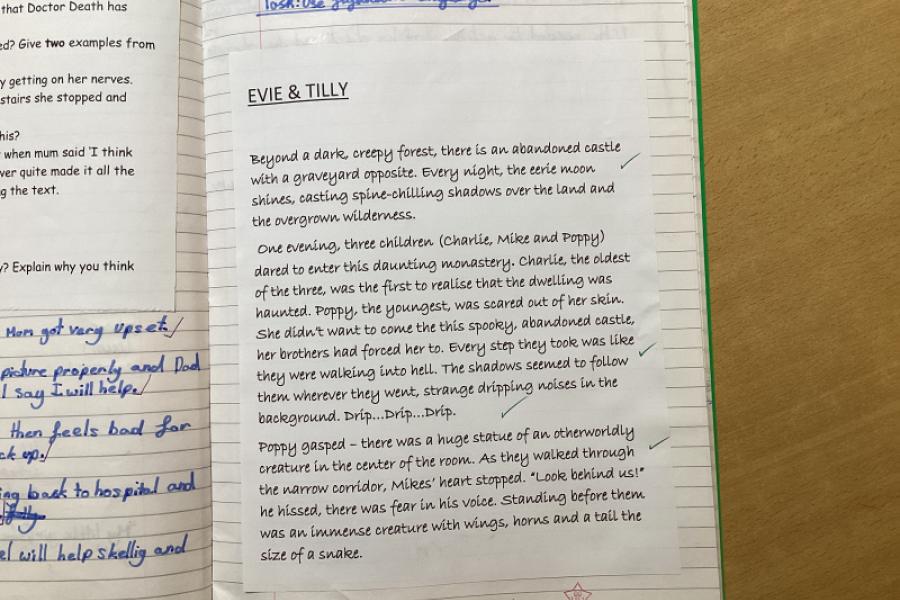 that Doctor Death has
ed? Give two examples from
y getting on her nerves.
stairs she stopped and
his?
when mum said 'I think
ver quite made it all the
g the text.
y? Explain why you think
Mom got very upset.
picture properly and Dad
I say I will help.
then feels bad for
ck up.
ing back to hospital and
el will help skellig and
Task: Use
EVIE & TILLY
Beyond a dark, creepy forest, there is an abandoned castle
with a graveyard opposite. Every night, the eerie moon
shines, casting spine-chilling shadows over the land and
the overgrown wilderness.
One evening, three children (Charlie, Mike and Poppy)
dared to enter this daunting monastery. Charlie, the oldest
of the three, was the first to realise that the dwelling was
haunted. Poppy, the youngest, was scared out of her skin.
She didn't want to come the this spooky, abandoned castle,
her brothers had forced her to. Every step they took was like
they were walking into hell. The shadows seemed to follow
them wherever they went, strange dripping noises in the
background. Drip...Drip...Drip.
Poppy gasped – there was a huge statue of an otherworldly
creature in the center of the room. As they walked through
the narrow corridor, Mikes' heart stopped. "Look behind us!"
he hissed, there was fear in his voice. Standing before them
was an immense creature with wings, horns and a tail the
size of a snake.